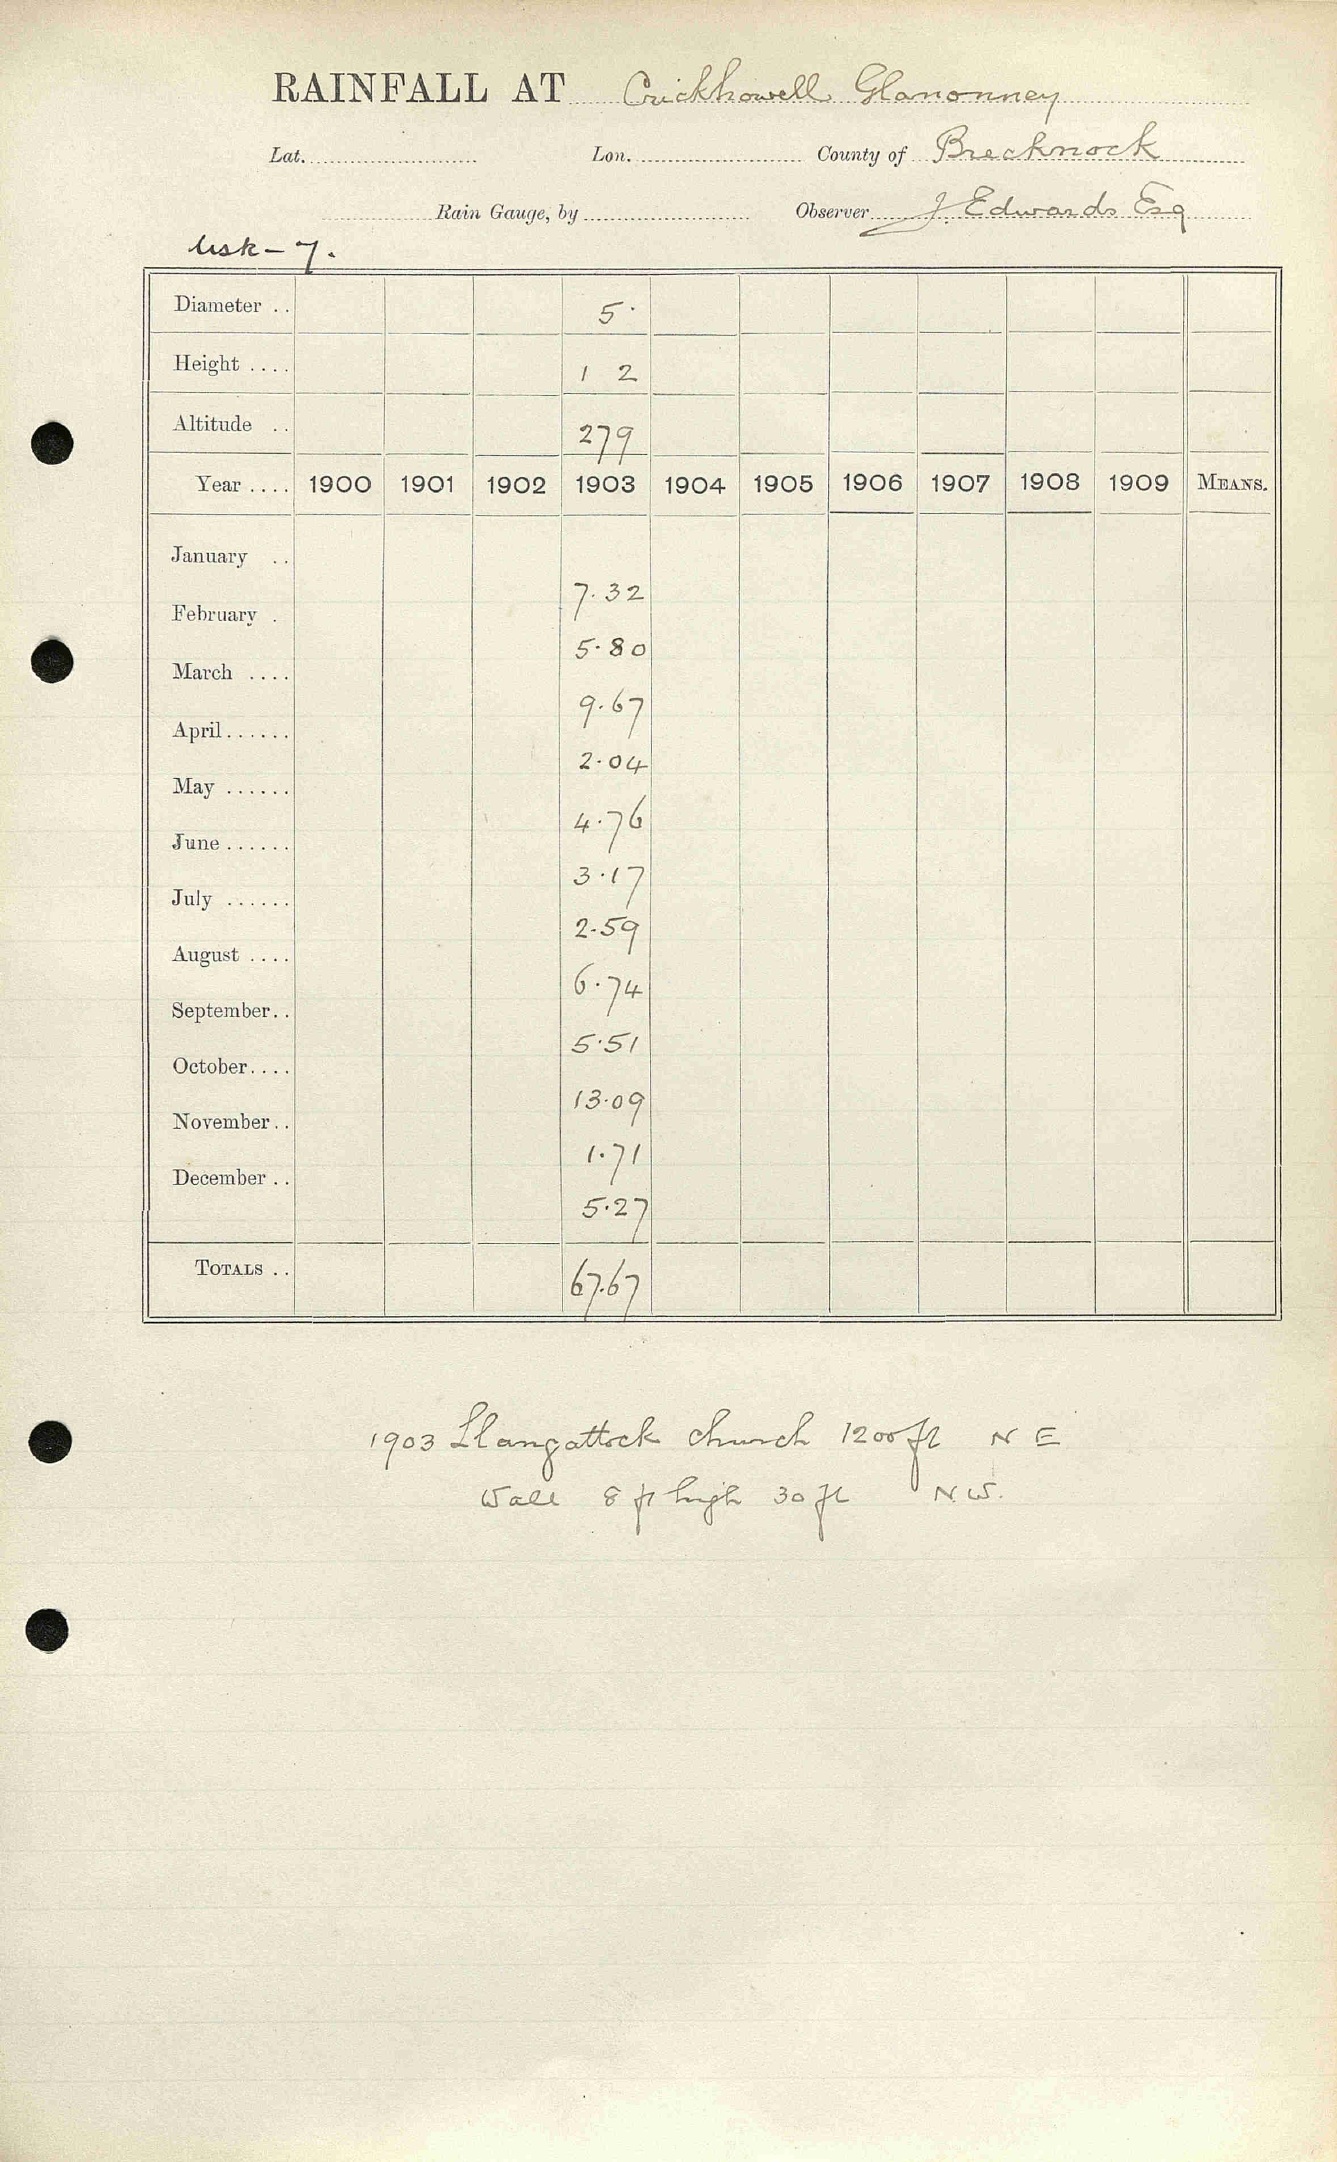 RAINFALL AT Crickhowell Glanonney
Lat. Lon. County of Brecknock
Rain Gauge, by Observer J. Edwards Esq
Usk - 7.
Diameter .. 5.
Height .... 1 2
Altitude .. 279
Year .... 1900 1901 1902 1903 1904 1905 1906 1907 1908 1909 MEANS.
January ..
7.32
February .
5.80
March ....
9.67
April......
2.04
May ......
4.76
June ......
3.17
July ......
2.59
August ....
6.74
September..
5.51
October....
13.09
November..
1.71
December ..
5.27
TOTALS .. 67.67
1903 Llangattock church 1200 ft N E
Wall 8 ft high 30 ft N.W.